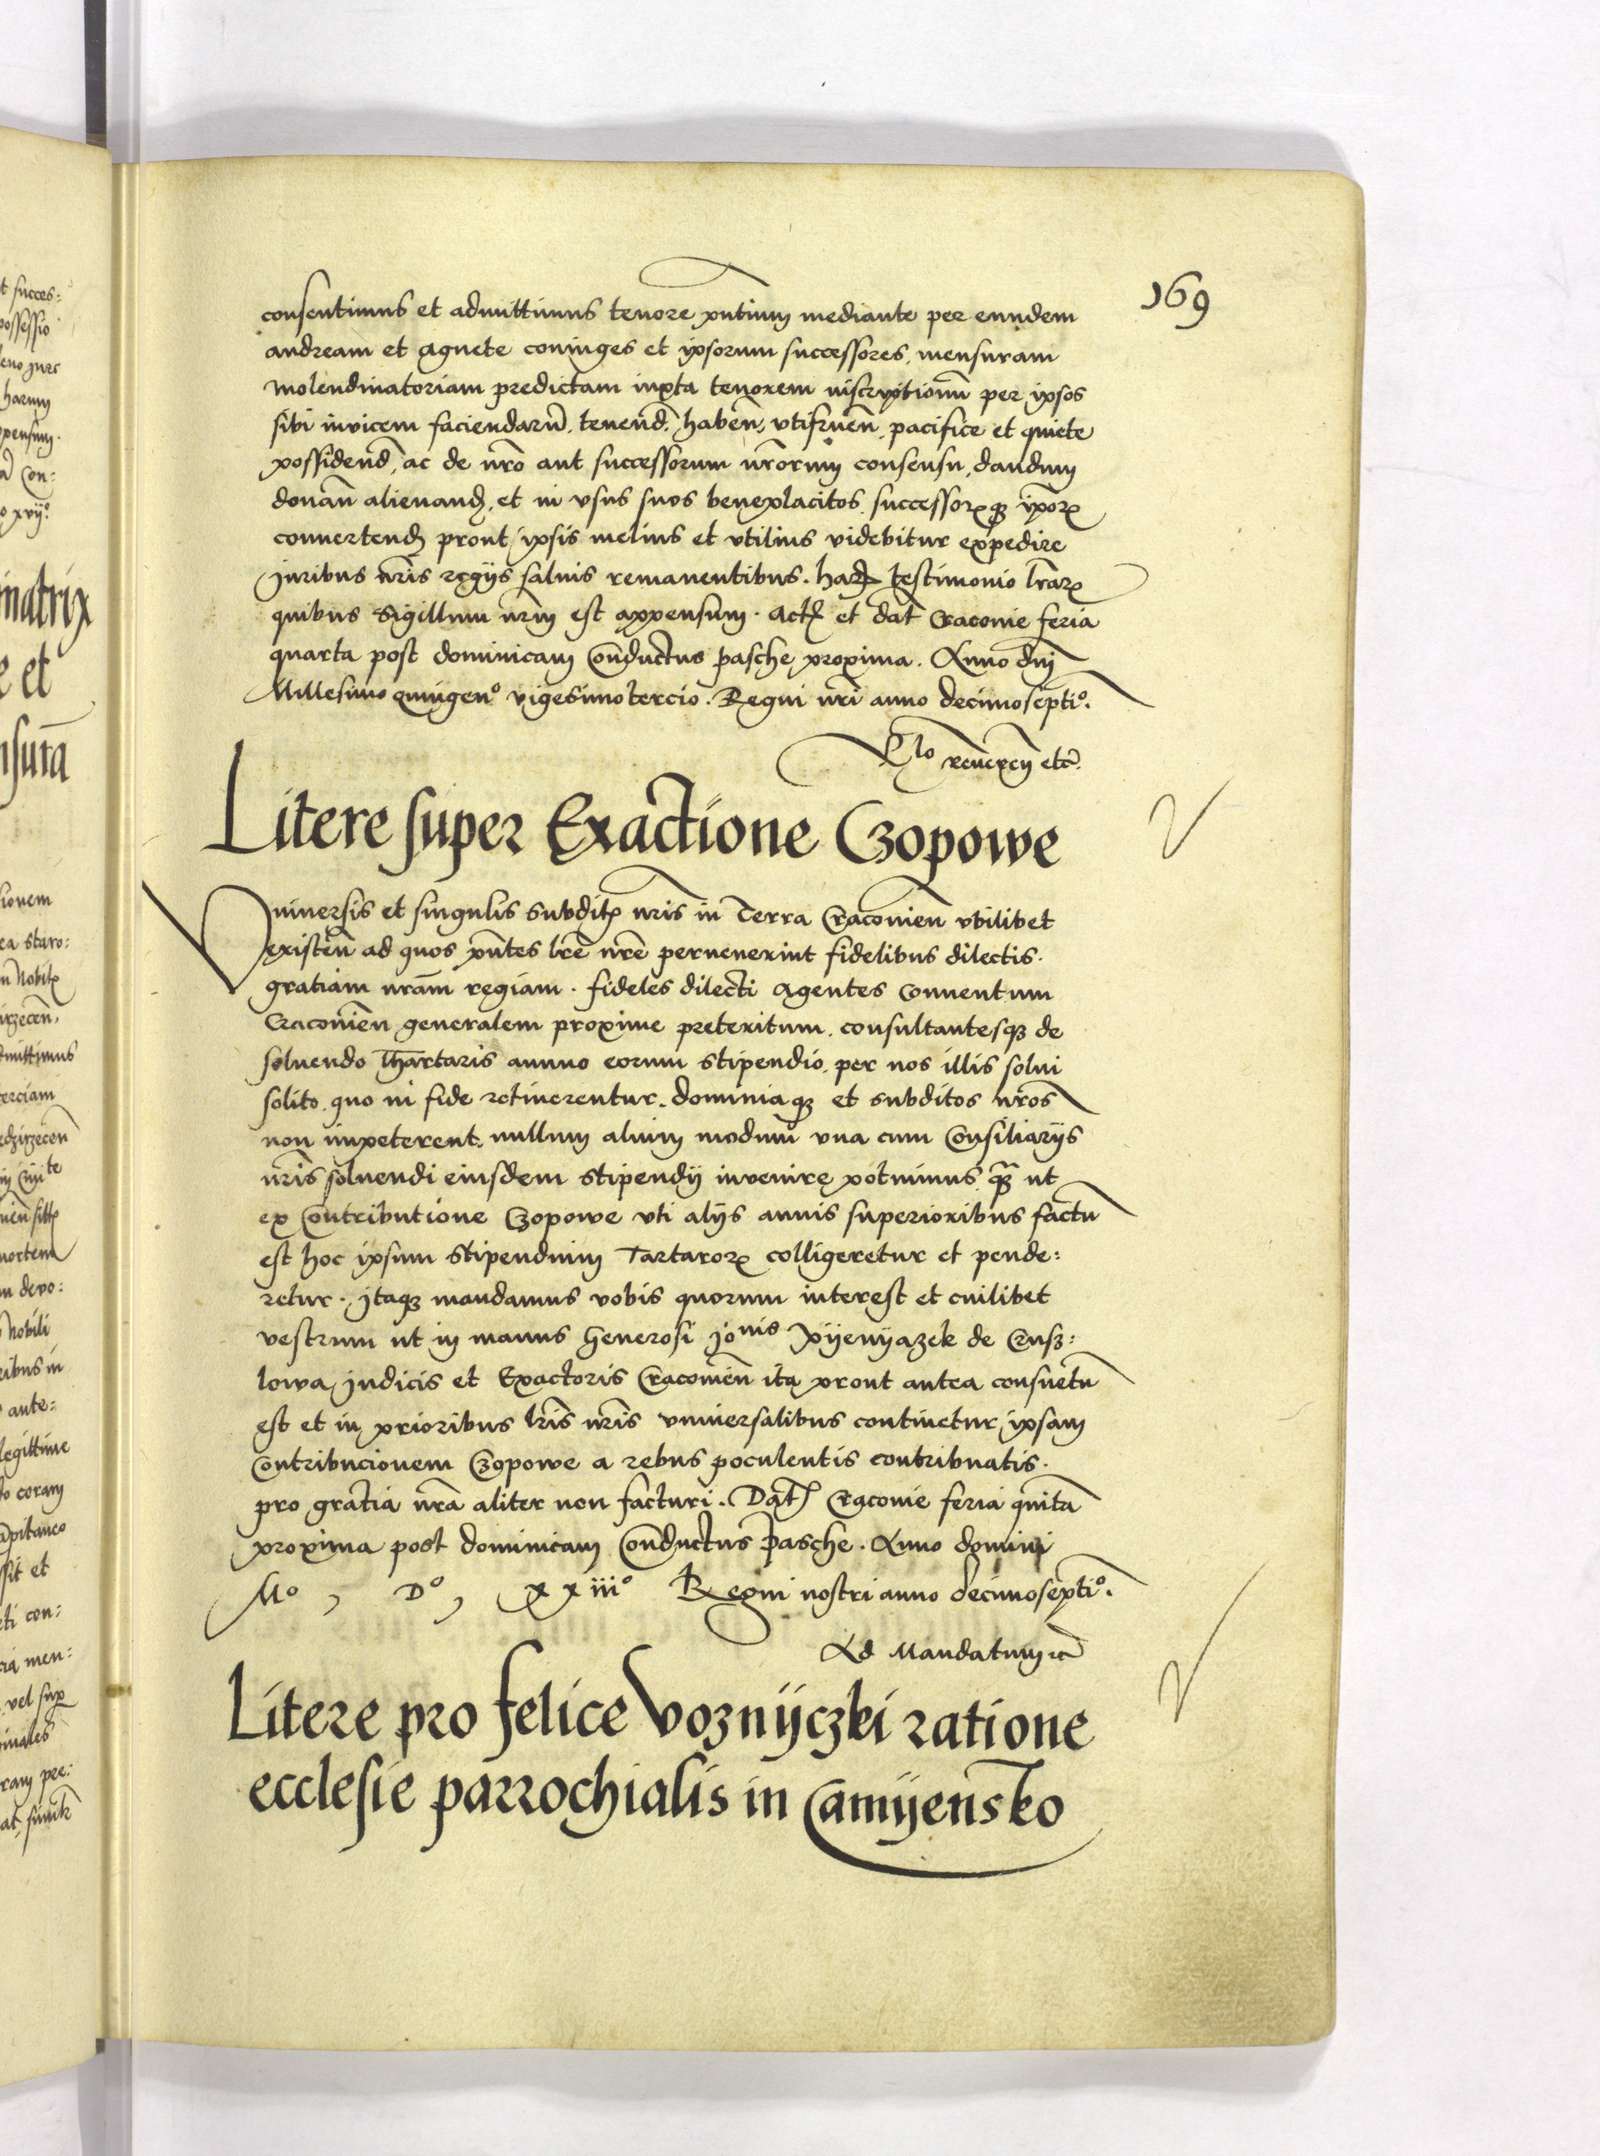 169
consentimus et admittimus tenore pntium mediante per eundem
andream et Agnete coniuges et ipsorum successores, mensuram
molendinatoriam predictam iuxta tenorem inscriptionum per ipsos
sibi invicem faciendarū, tenend̄, habeñ, vtifrueñ, pacifice et quiete
possidend̄, ac de nr̄o aut successorum nr̄orum consensu, dandum
donañ alienand̄, et in vsus suos beneplacitos, successorꝝ qꝫ ipōrꝝ
convertend̄ prout ipsis melius et vtilius videbitur expedire
Juribus nr̄is regijs saluis remanentibus. harꝝ testimonio lr̄arꝝ
quibus Sigillum nr̄m est appensum. Act̄ et dat̄ Cracouie feria
quarta post dominicam Conductus Pasche proxima. Anno dnj̄
Millesimo quingen° vigesimotercio. Regni nr̄i anno decimosepti°.
Rlo reuerēn etc̄.
Litere super Exactione Czopowe
Vniuersis et singulis subditꝭ nr̄is in Terra Cracouieñ vbilibet
existeñ ad quos pn̄tes lr̄e nr̄e peruenerint fidelibus dilectis.
gratiam nr̄am regiam. fideles dilecti Agentes Conuentum
Cracouieñ generalem proxime preteritum, consultantesqꝫ de
soluendo Thartaris annuo eorum stipendio, per nos illis solui
solito, quo in fide retinerentur, dominia qꝫ et subditos nr̄os
non impeterent, nullum alium modum vna cum Consiliarijs
nr̄is soluendi eiusdem stipendij invenire potuimus qꝫ̄ ut
ex Contributione Czopowe vti alijs annis superioribus factū
est hoc ipsum stipendium Tartarorꝝ colligeretur et pende:
retur. Itaqꝫ mandamus vobis quorum interest et cuilibet
vestrum ut in manus Generosi Jonis Pyenyazek de Crusz:
lowa Judicis et Exactoris Cracouieñ ita prout antea consuetū
est et in prioribus lr̄is nr̄is vniuersalibus continetur, ipsam
Contribucionem Czopowe a rebus poculentis contribuatis.
pro gratia nr̄a aliter non facturi. Dat̄ Cracouie feria quinta
proxima post dominicam Conductus Pasche. Anno domini
M°, D°, xxiii° Regni nostri anno decimosepti°.
Ad Mandatum ꝛc̄
Litere pro felice Voznyczki ratione
ecclesie parrochialis in Camyensko